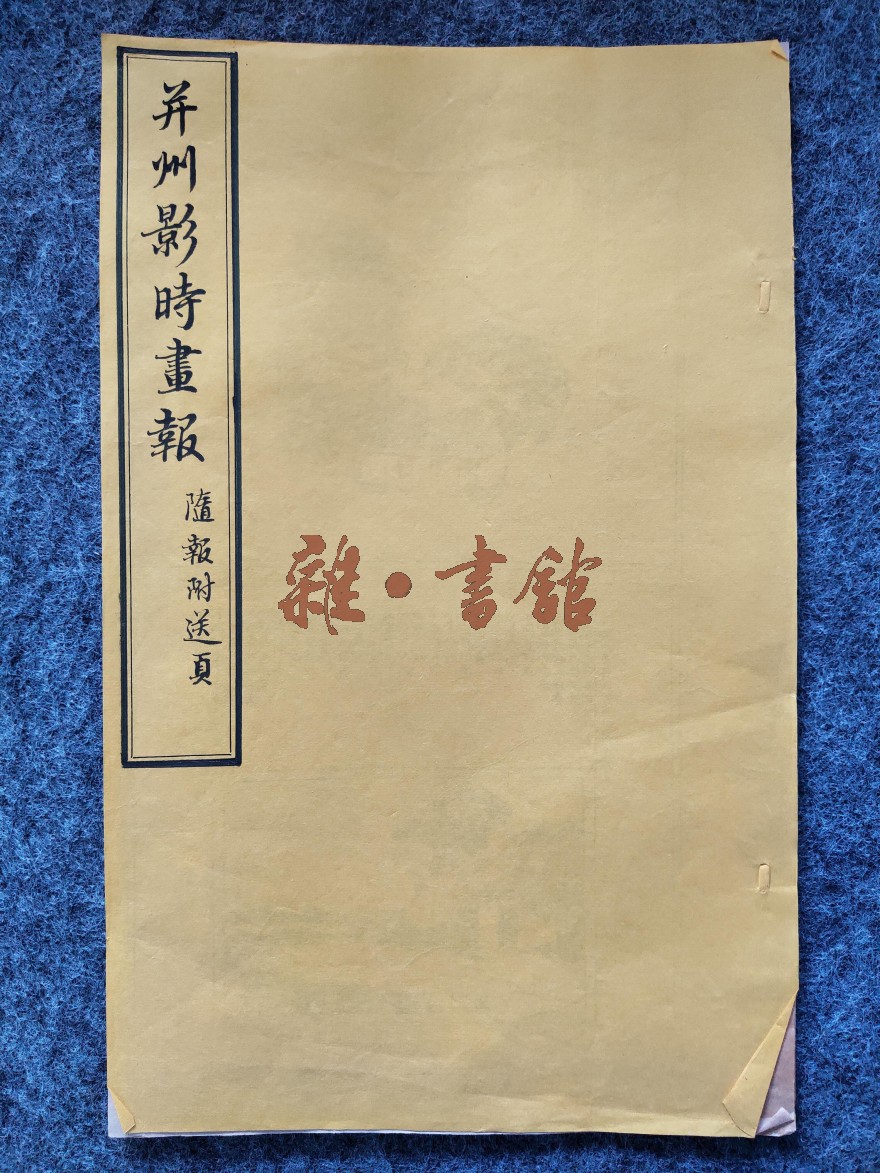 并州影時畫報
隨報附送頁
雜·書館